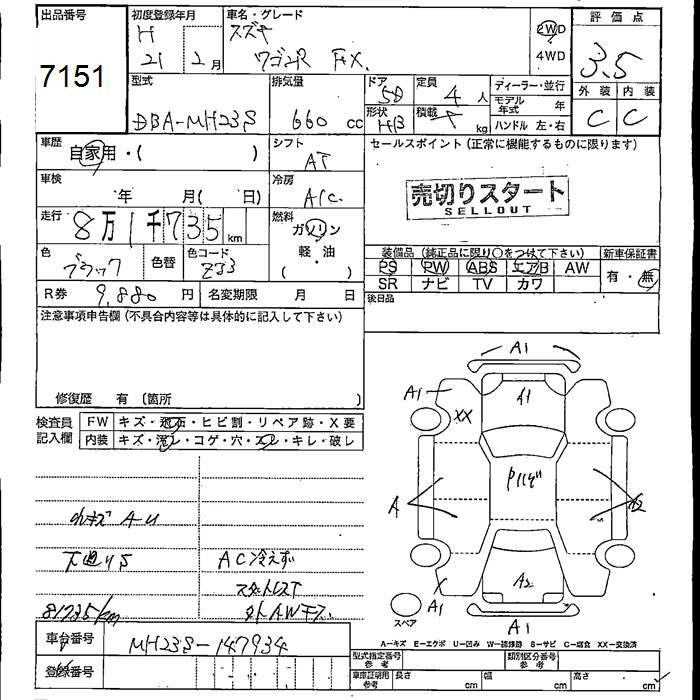 出品番号
7151
初度登録年月
H
21 2月
車名・グレード
スズキ
ワゴンR FX.
2WD
4WD
評価点
3.5
外装 内装
C C
型式
DBA-MH23S
排気量
660 cc
ドア
5D
形状
HB
定員
4人
積載
kg
ディーラー・並行
モデル年式 年
ハンドル 左・右
車歴
自家用・( )
シフト
AT
セールスポイント(正常に機能するものに限ります)
売切りスタート
SELLOUT
車検
年 月( 日)
冷房
A/C.
走行
8万1千735 km
燃料
ガソリン
軽・油
( )
色
ブラック
色替
色コード
ZJ3
装備品(純正品に限り○をつけて下さい)
PS PW ABS エアB AW
SR ナビ TV カワ
新車保証書
有・無
R券 9,880 円
名変期限 月 日
後日品
注意事項申告欄(不具合内容等は具体的に記入して下さい)
修復歴 有(箇所 )
検査員記入欄
FW キズ・飛石・ヒビ割・リペア跡・X要
内装 キズ・汚レ・コゲ・穴・スレ・キレ・破レ
小キズ AU
下廻りS
AC冷えず
81735/km
車台番号 MH23S-147934
登録番号
A1
A1
A1
XX
A
A2
A2
A1
A1
スペア
A-キズ E-エクボ U-凹み W-補修跡 S-サビ C-腐食 XX-交換済
型式指定番号
参考
類別区分番号
参考
車庫証明用
参考
長さ cm
幅 cm
高さ cm